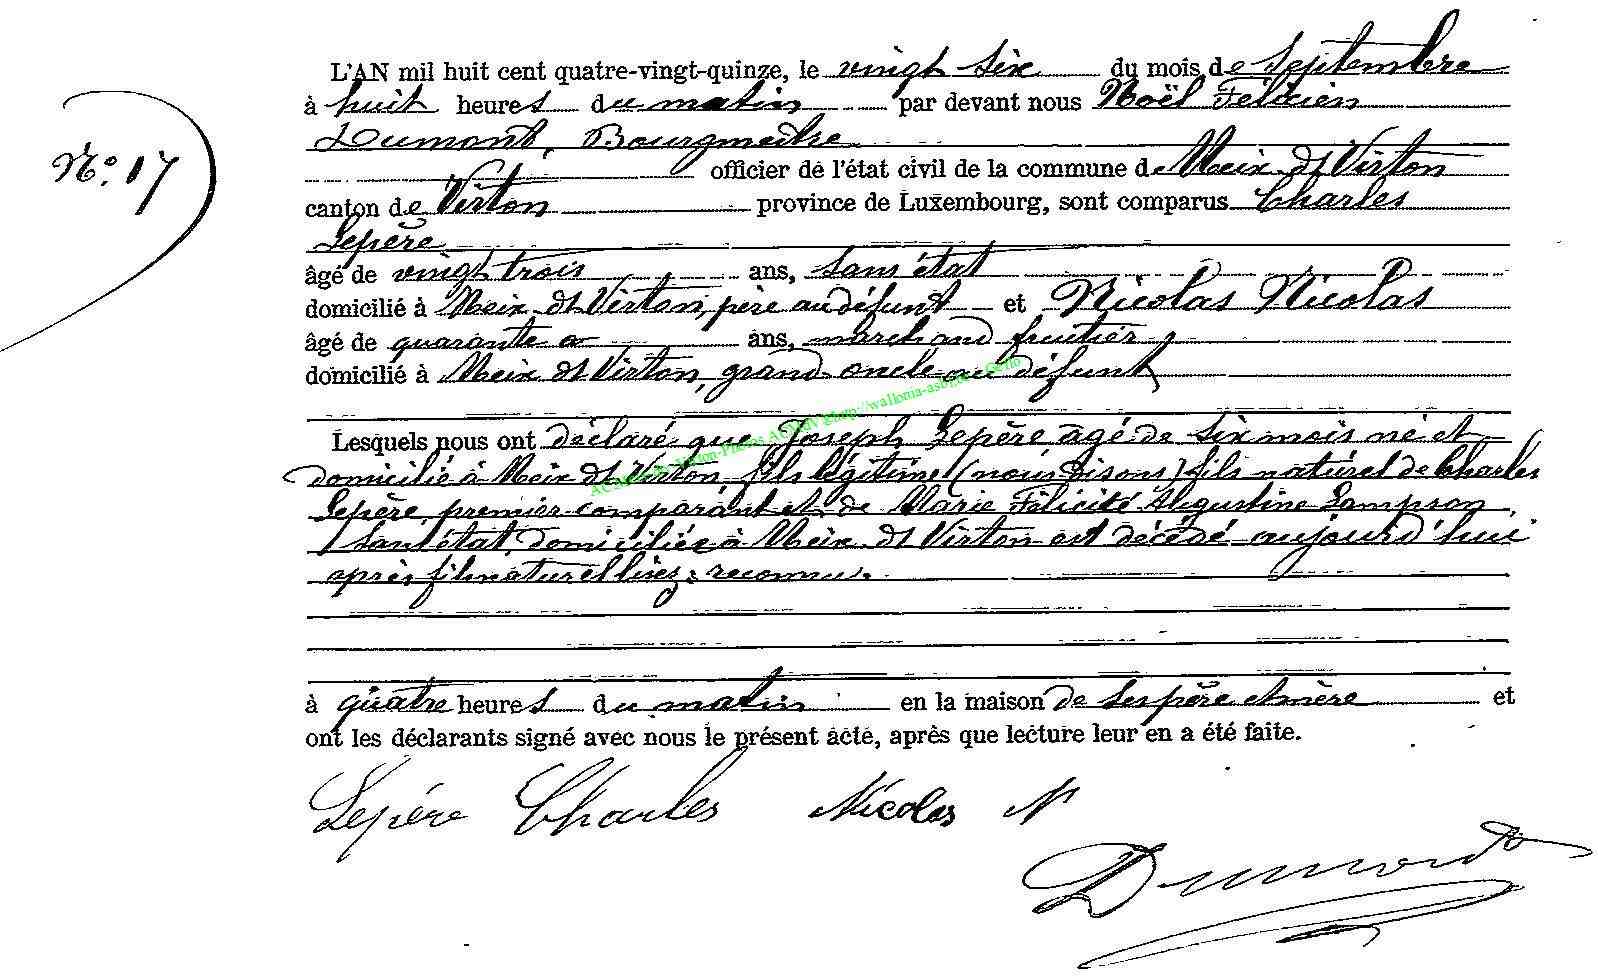 L'AN mil huit cent quatre-vingt-quinze, le vingt six du mois de Septembre
à huit heures du matin par devant nous Noël Félicien
N.º 17
Dumont, Bourgmestre
officier de l'état civil de la commune de Meix dt Virton
canton de Virton province de Luxembourg, sont comparus Charles
Lepère
âgé de vingt trois ans, sans état
domicilié à Meix dt Virton, père au défunt et Nicolas Nicolas
âgé de quarante ans, marchand fruitier,
domicilié à Meix dt Virton, grand oncle au défunt
Lesquels nous ont déclaré que Joseph Lepère âgé de six mois né et
domicilié à Meix dt Virton, fils légitime (nous disons) fils naturel de Charles
Lepère, premier comparant et de Marie Félicité Augustine Lampson
sans état, domiciliée à Meix dt Virton est décédé aujourd'hui
après fils naturel lisez: reconnu.
à quatre heures du matin en la maison de ses père et mère et
ont les déclarants signé avec nous le présent acte, après que lecture leur en a été faite.
Lepère Charles Nicolas N
Dumont